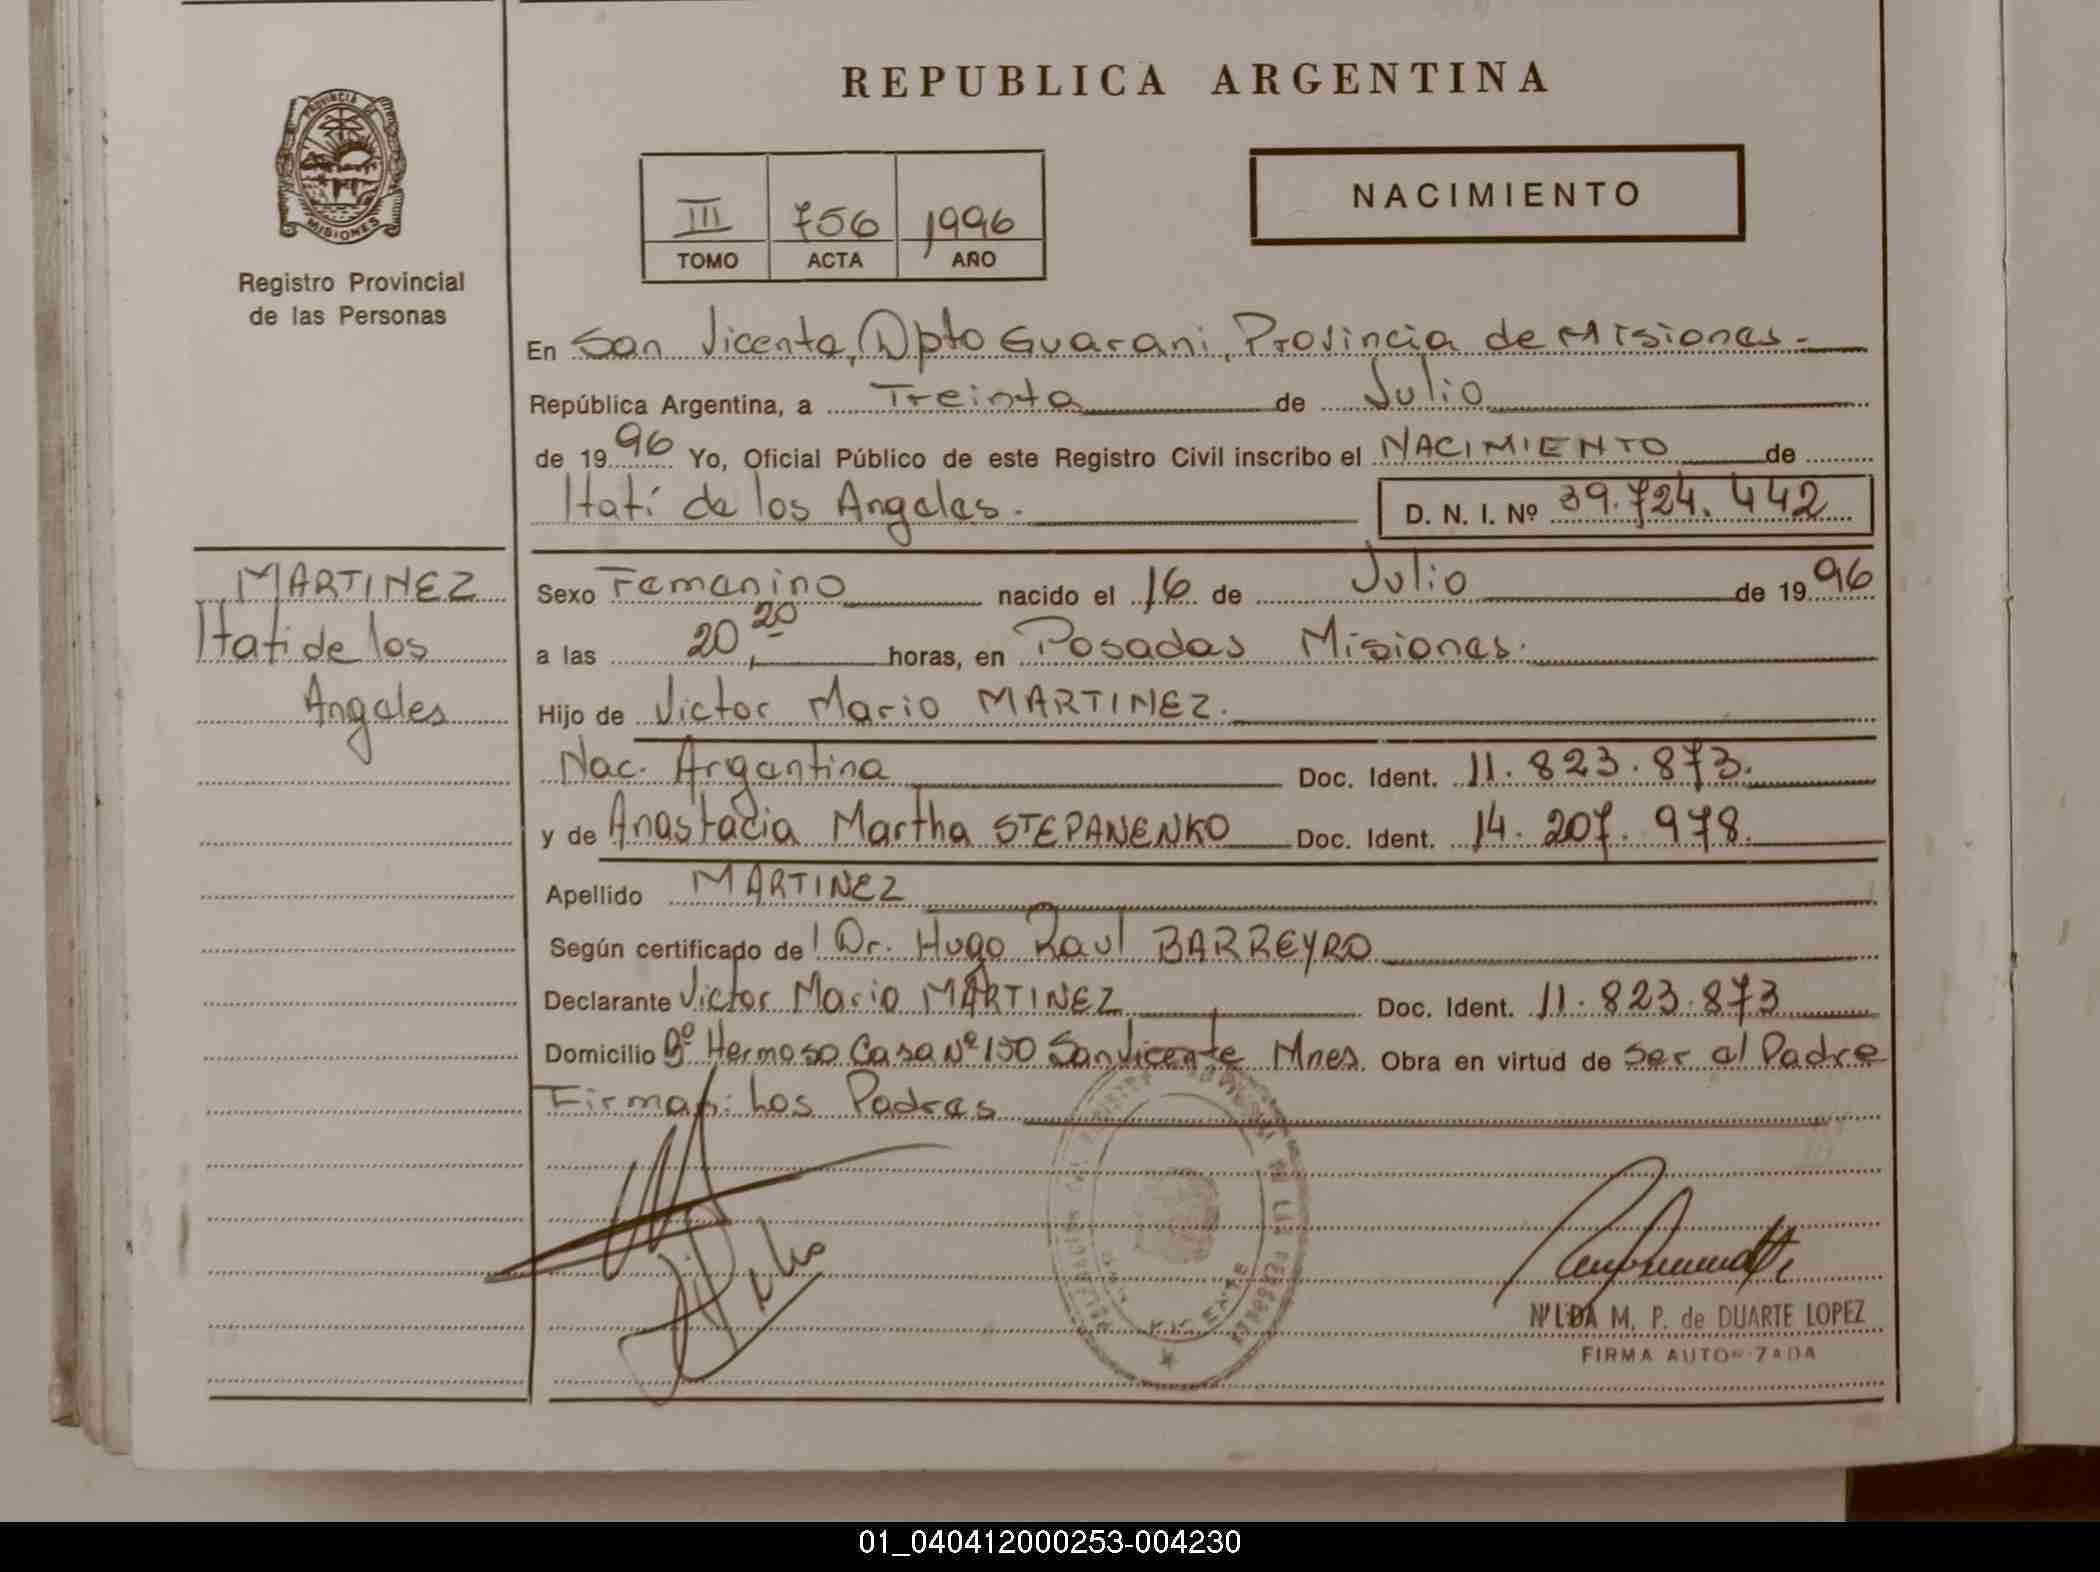 REPUBLICA ARGENTINA
PROVINCIA DE
MISIONES
Registro Provincial
de las Personas
III 756 1996
TOMO ACTA AÑO
NACIMIENTO
En San Vicente, Dpto Guarani, Provincia de Misiones.
República Argentina, a Treinta de Julio
de 1996 Yo, Oficial Público de este Registro Civil inscribo el NACIMIENTO de
Itatí de los Angeles. D. N. I. Nº 39.724.442
MARTINEZ
Itati de los
Angeles
Sexo Femenino nacido el 16 de Julio de 1996
a las 20,20 horas, en Posadas Misiones.
Hijo de Victor Mario MARTINEZ.
Nac. Argentina Doc. Ident. 11.823.873.
y de Anastacia Martha STEPANENKO Doc. Ident. 14.207.978.
Apellido MARTINEZ
Según certificado de Dr. Hugo Raul BARREYRO
Declarante Victor Mario MARTINEZ Doc. Ident. 11.823.873
Domicilio Bº Hermoso Casa Nº 150 San Vicente Mnes. Obra en virtud de ser el Padre
Firman: Los Padres
NILDA M. P. de DUARTE LOPEZ
FIRMA AUTORIZADA
01_040412000253-004230